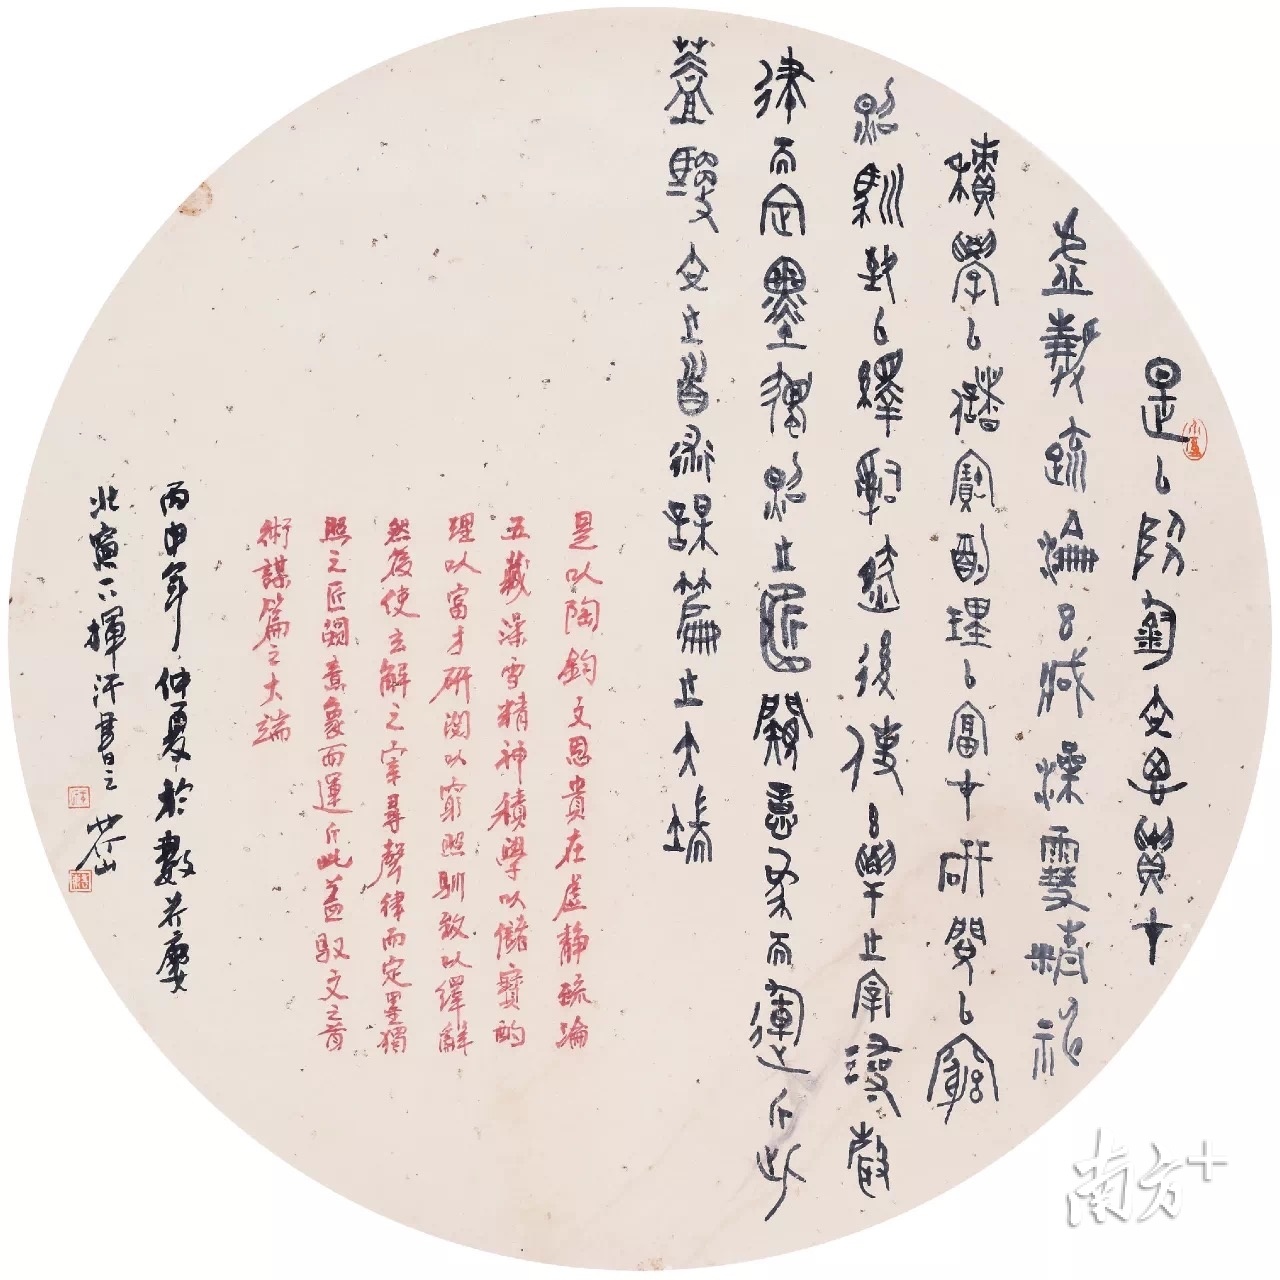 是以陶鈞文思貴在
虛靜疏瀹五藏澡雪精神
積學以儲寶酌理以富才研閱以窮
照馴致以繹辭然後使玄解之宰尋聲
律而定墨獨照之匠闚意象而運斤此
蓋馭文之首術謀篇之大端
是以陶鈞文思貴在虛靜疏瀹
五藏澡雪精神積學以儲寶酌
理以富才研閱以窮照馴致以繹辭
然後使玄解之宰尋聲律而定墨獨
照之匠闚意象而運斤此蓋馭文之首
術謀篇之大端
丙申年仲夏於數
北窗下揮汗書之
南方+